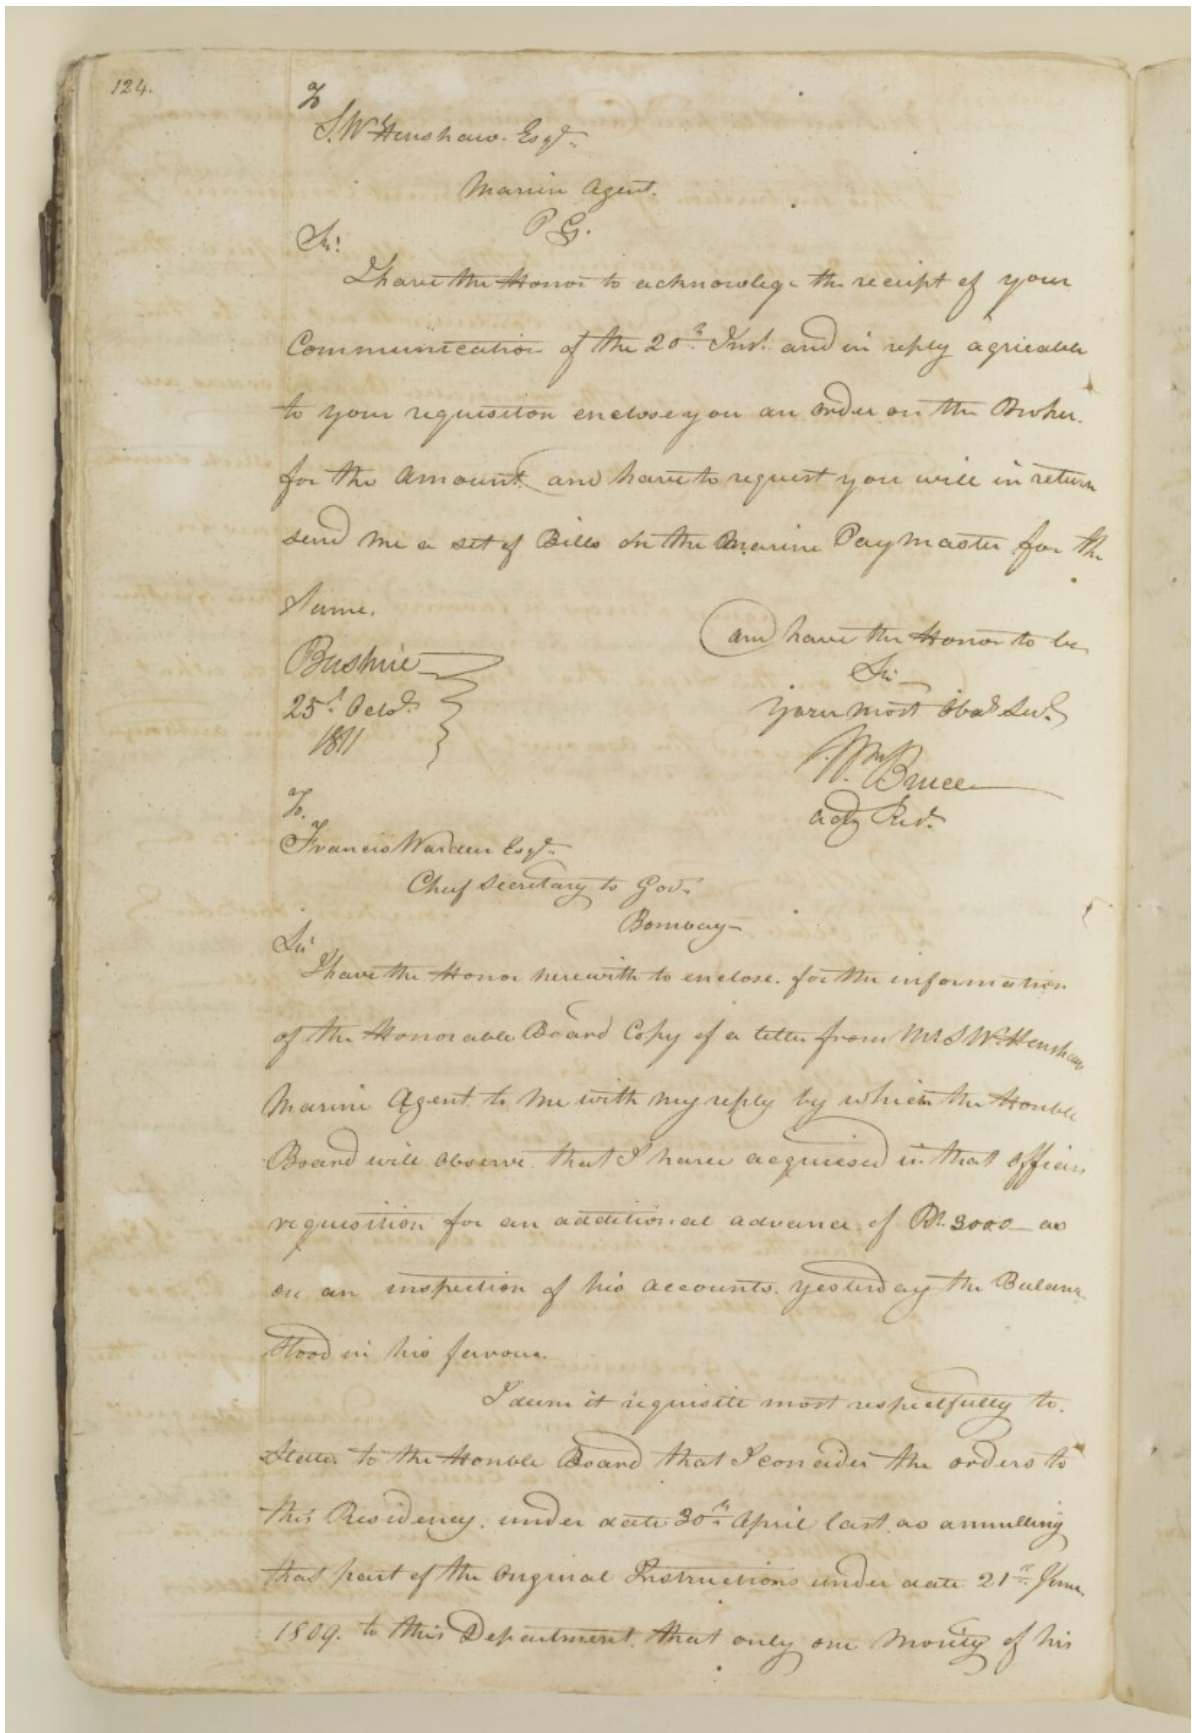 124.
To
S. W. Henshaw. Esqr.
Marine Agent.
P G.
Sir!
I have the Honor to acknowlege the receipt of your
Communication of the 20th Inst. and in reply agreeable
to your requisiton enclose you an order on the Broker.
for the Amount. and have to request you will in return
send me a set of Bills on the Marine Paymaster for the
Same.
Bushire
25th Octor.
1811
and have the Honor to be
Sir
your most Obdt. Servt.
Wm Bruce
actg Resdt.
To.
Francis Warden Esqr.
Chief Secretary to Govt.
Bombay
Sir
I have the Honor herewith to enclose. for the information
of the Honorable Board Copy of a letter from Mr S W. Henshaw
Marine Agent to me with my reply by which the Honble
Board will observe. that I have acquiesed in that officers
requisition for an additional advance of Rs. 3000 – as
on an inspection of his accounts. yesterday the Balance
stood in his favour.
I deem it requisite most respectfully to.
State. to the Honble Board that I consider the orders to
this Residency. under date 30th April last. as annulling
that part of the Original Instructions under date 21st June.
1809. to this Department. that only one Moiety of his